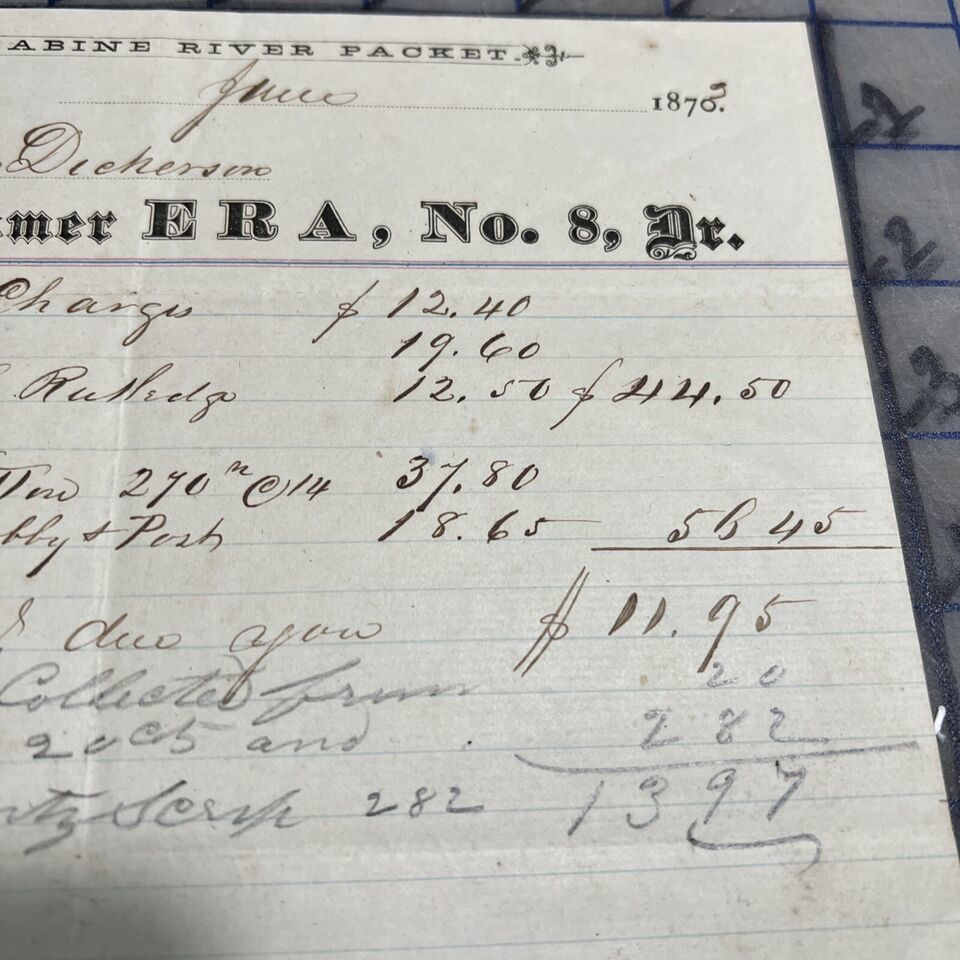 ABINE RIVER PACKET.
June 1873.
Dickerson
mer ERA, No. 8, Dr.
Charges $ 12.40
19.60
Rutledge 12.50 $ 44.50
270 @ 14 37.80
bby & Posh 18.65 56 45
due you $ 11.95
Collected from 20
20 cts and 2 82
nty Scrip 282 13 97
2
2
3